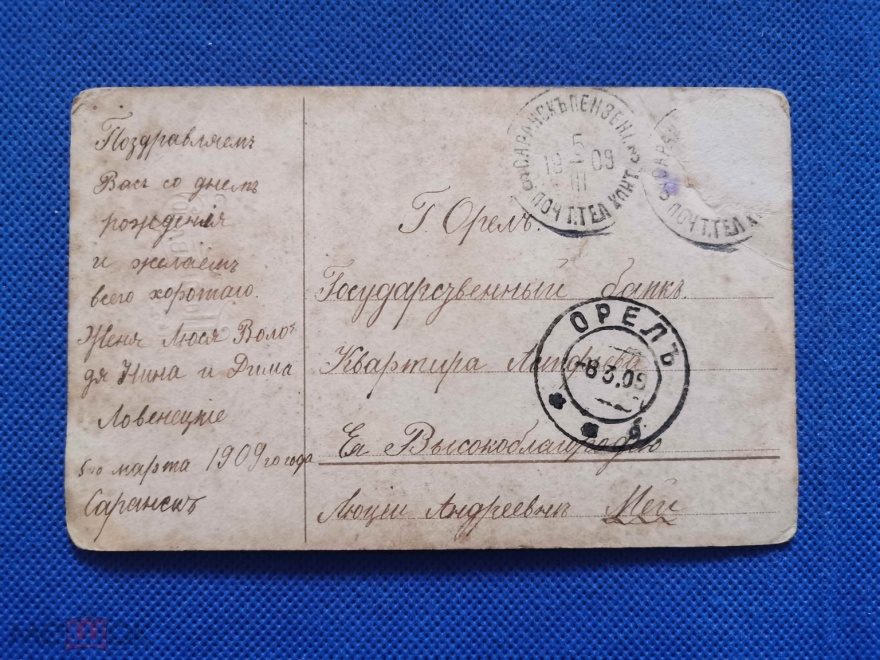 Поздравляемъ
Васъ со днемъ
рожденія
и желаемъ
всего хорошаго.
Женя Люся Воло-
дя Нина и Дима
Ловенецкіе
5го марта 1909 го года
Саранскъ
Г. Орелъ.
Государственный банкъ.
Квартира
Ея Высокоблагородію
Люціи Андреевнѣ Мей
САРАНСКЪ ПЕНЗЕН.
5
19 09
III
ПОЧТ.ТЕЛ.КОНТ.
САРАНСКЪ
ПОЧТ.ТЕЛ.К
ОРЕЛЪ
-8 3.09
б